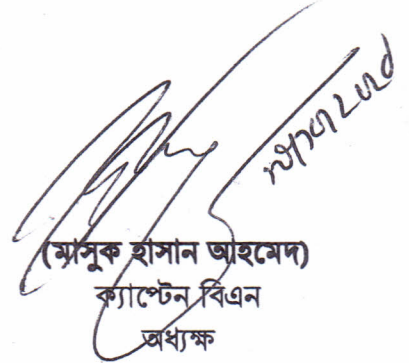 (মাসুক হাসান আহমেদ)
ক্যাপ্টেন বিএন
অধ্যক্ষ